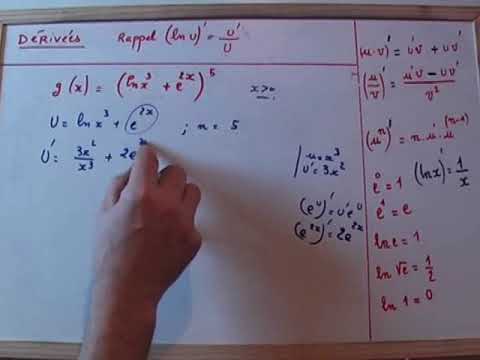 Dérivées Rappel (ln U)' = U'/U
g(x) = (ln x³ + e^{2x})^5 x>0
U = ln x³ + e^{2x} ; n = 5
U' = 3x²/x³ + 2e
u = x³
U' = 3x²
(e^U)' = U'e^U
(e^{2x})' = 2e^{2x}
(u·v)' = u'v + uv'
(u/v)' = (u'v - uv')/v²
(u^n)' = n·u'·u^{(n-1)}
e^0 = 1
(ln x)' = 1/x
e^1 = e
ln e = 1
ln √e = 1/2
ln 1 = 0